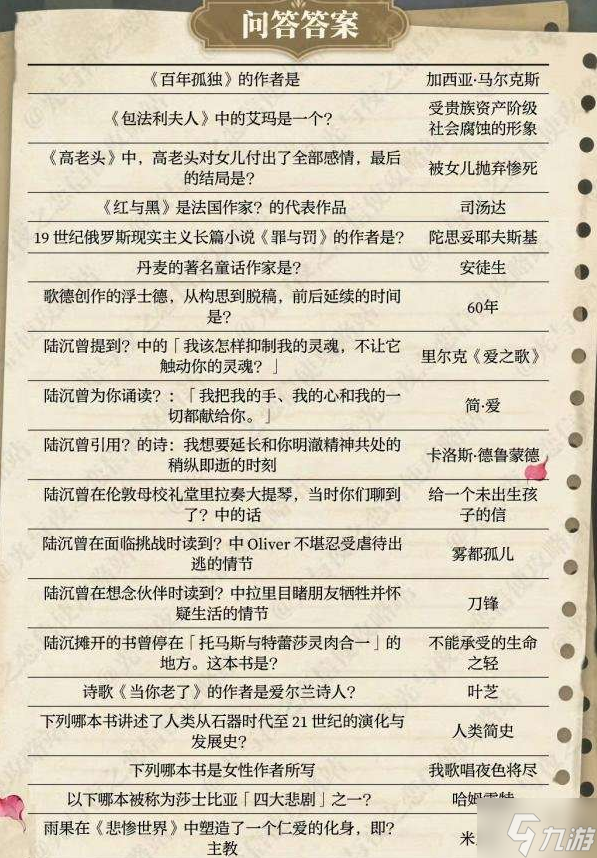 问答答案
《百年孤独》的作者是 加西亚·马尔克斯
《包法利夫人》中的艾玛是一个？ 受贵族资产阶级
社会腐蚀的形象
《高老头》中，高老头对女儿付出了全部感情，最后
的结局是？ 被女儿抛弃惨死
《红与黑》是法国作家？的代表作品 司汤达
19 世纪俄罗斯现实主义长篇小说《罪与罚》的作者是？ 陀思妥耶夫斯基
丹麦的著名童话作家是？ 安徒生
歌德创作的浮士德，从构思到脱稿，前后延续的时间
是？ 60年
陆沉曾提到？中的「我该怎样抑制我的灵魂，不让它
触动你的灵魂？」 里尔克《爱之歌》
陆沉曾为你诵读？：「我把我的手、我的心和我的一
切都献给你。」 简·爱
陆沉曾引用？的诗：我想要延长和你明澈精神共处的
稍纵即逝的时刻 卡洛斯·德鲁蒙德
陆沉曾在伦敦母校礼堂里拉奏大提琴，当时你们聊到
了？中的话 给一个未出生孩
子的信
陆沉曾在面临挑战时读到？中 Oliver 不堪忍受虐待出
逃的情节 雾都孤儿
陆沉曾在想念伙伴时读到？中拉里目睹朋友牺牲并怀
疑生活的情节 刀锋
陆沉摊开的书曾停在「托马斯与特蕾莎灵肉合一」的
地方。这本书是？ 不能承受的生命
之轻
诗歌《当你老了》的作者是爱尔兰诗人？ 叶芝
下列哪本书讲述了人类从石器时代至 21 世纪的演化与
发展史？ 人类简史
下列哪本书是女性作者所写 我歌唱夜色将尽
以下哪本被称为莎士比亚「四大悲剧」之一？ 哈姆雷特
雨果在《悲惨世界》中塑造了一个仁爱的化身，即？
主教 米
九游